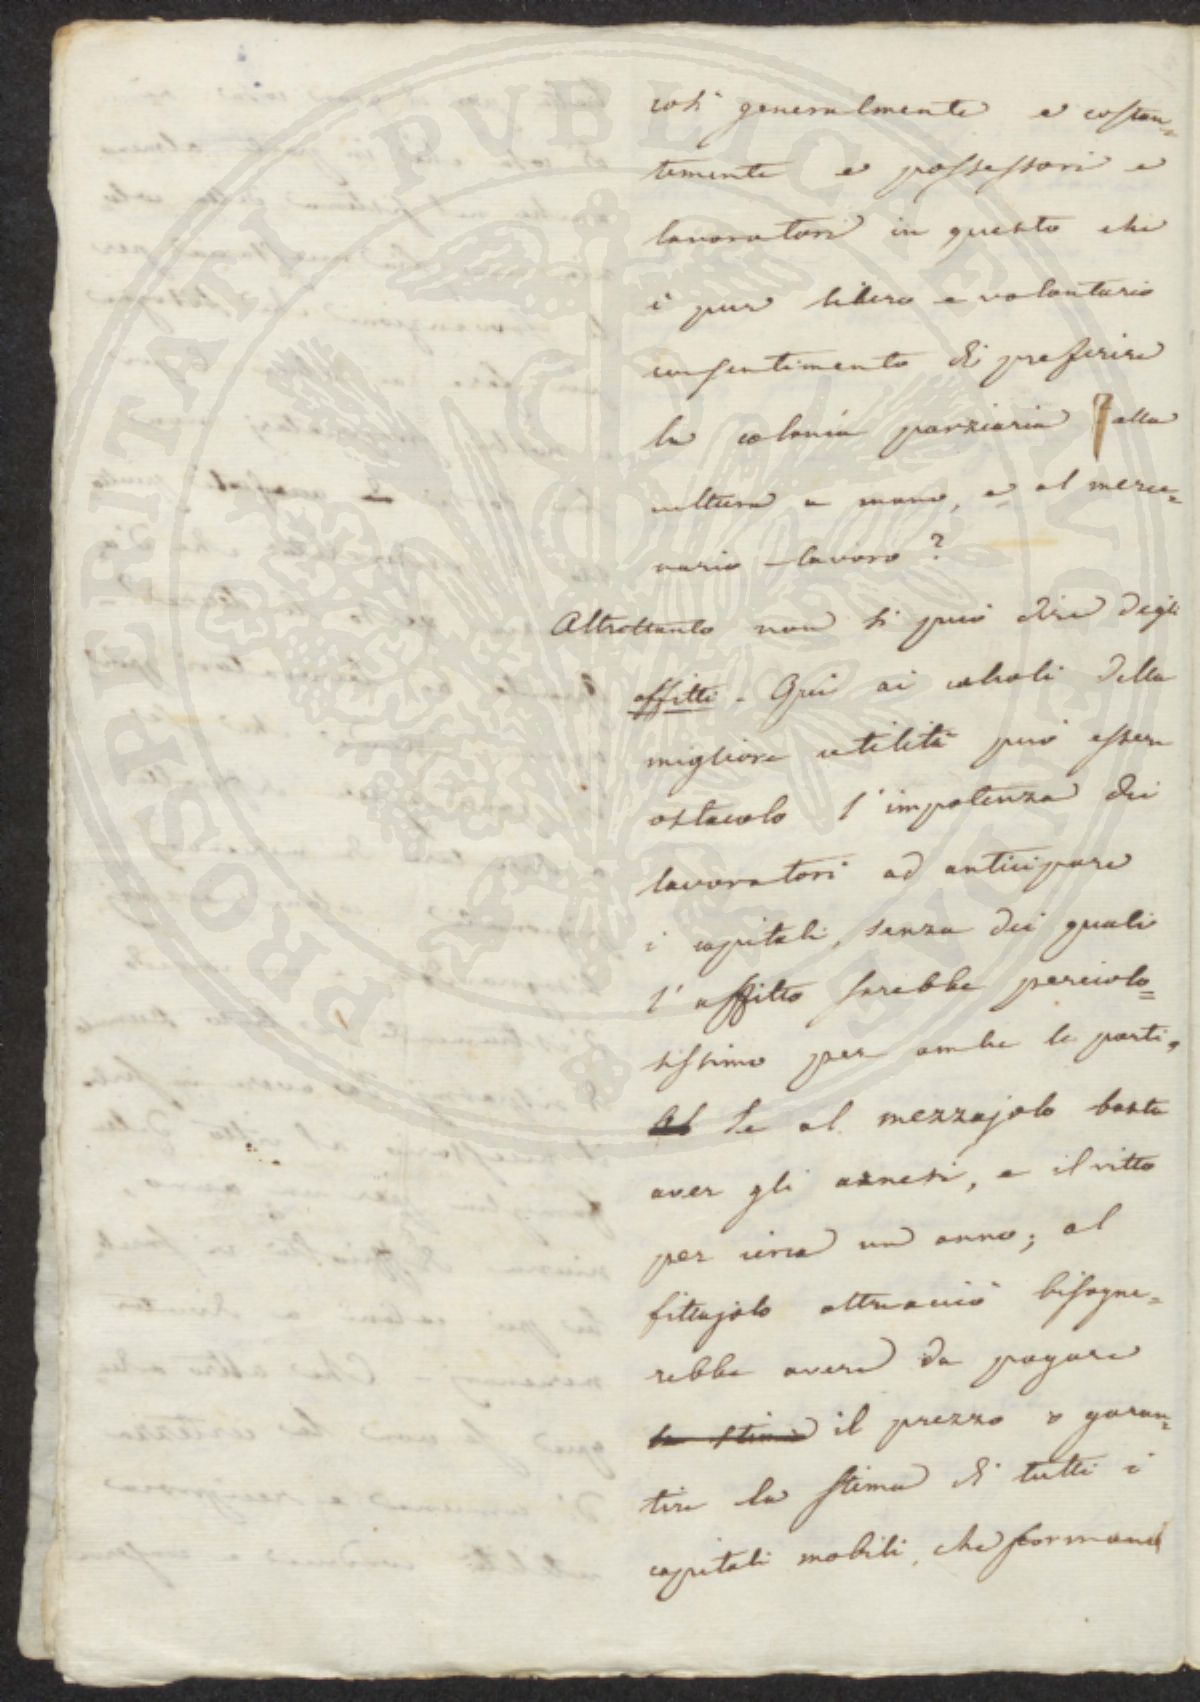 così generalmente e costan=
temente e possessori e
lavoratori in questo che
è pur libero e volontario
consentimento di preferire
la colonìa parziaria alla
coltura a mano, e al merce=
nario lavoro?
Altrettanto non si può dire degli
affitti. Qui ai calcoli della
migliore utilità può essere
ostacolo l'impotenza dei
lavoratori ad anticipare
i capitali, senza dei quali
l'affitto sarebbe pericolo=
sissimo per ambe le parti.
Al Se al mezzajolo basta
aver gli arnesi, e il vitto
per circa un anno; al
fittajolo altresì bisogne=
rebbe avere da pagare
la stima il prezzo o garan=
tire la stima di tutti i
capitali mobili, che formano
PROSPERITATI PVBLICAE AVGENDAE